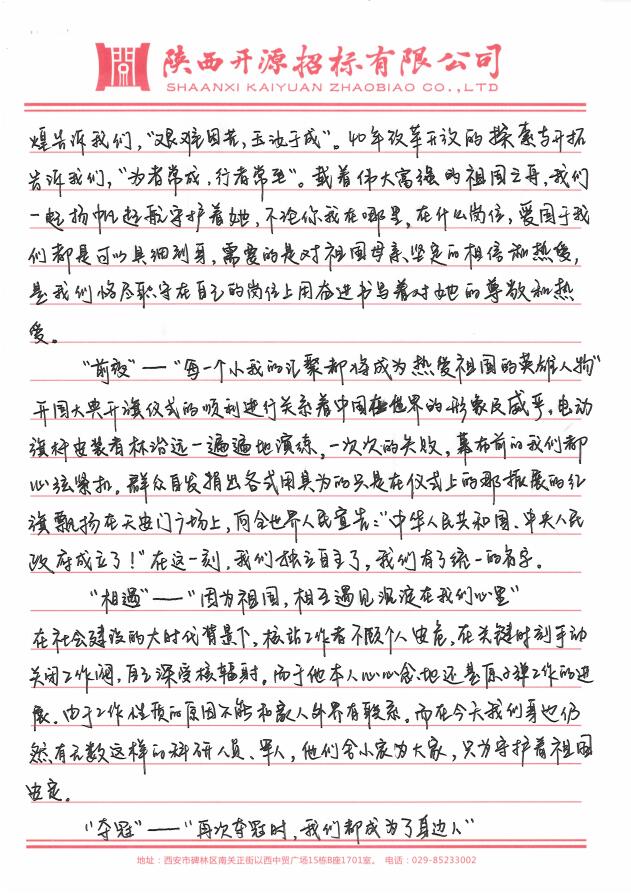 陕西开源招标有限公司
SHAANXI KAIYUAN ZHAOBIAO CO.,LTD
煌告诉我们，“艰难困苦，玉汝于成”。40年改革开放的探索与开拓
告诉我们，“为者常成，行者常至”。载着伟大富强的祖国之舟，我们
一起扬帆起航守护着她，不论你我在哪里，在什么岗位，爱国于我
们都是可以具细到身，需要的是对祖国母亲坚定的相信和热爱，
是我们恪尽职守在自己的岗位上用奋进书写着对她的尊敬和热
爱。
“前夜”——“每一个小我的汇聚都将成为热爱祖国的英雄人物”
开国大典升旗仪式的顺利进行关系着中国在世界的形象民威乎，电动
旗杆安装者林治远一遍遍地演练，一次次的失败，幕布前的我们都
心弦紧扣。群众自发捐出各式用具为的只是在仪式上的那振展的红
旗飘扬在天安门广场上，向全世界人民宣告：“中华人民共和国、中央人民
政府成立了！”在这一刻，我们独立自主了，我们有了统一的名字。
“相遇”——“因为祖国，相互遇见沉淀在我们心里”
在社会建设的大时代背景下，核站工作者不顾个人安危，在关键时刻手动
关闭工作阀，自己深受核辐射。而于他本人心心念地还是原子弹工作的进
展。由于工作性质的原因不能和家人外界有联系。而在今天我们身边仍
然有无数这样的科研人员、军人，他们舍小家为大家，只为守护着祖国
安定。
“夺冠”——“再次夺冠时，我们都成为了身边人”
地址：西安市碑林区南关正街以西中贸广场15栋B座1701室。 电话：029-85233002